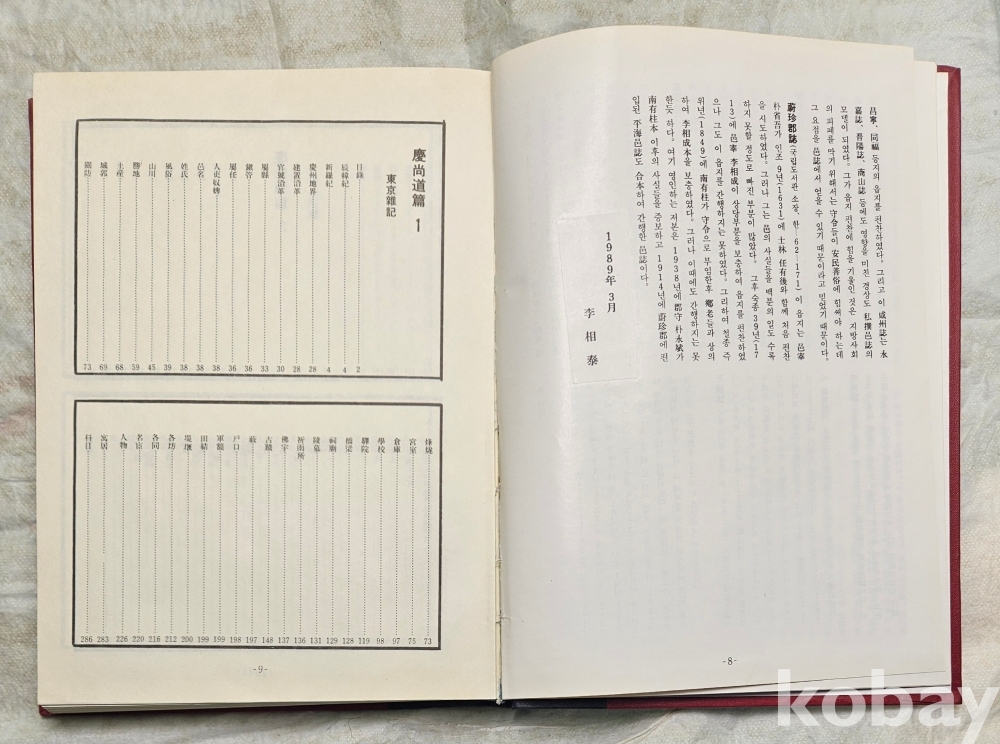 昌寧、同福 등지의 읍지를 편찬하였다. 그리고 이 咸州誌는 永
嘉誌、晋陽誌、商山誌 등에도 영향을 미친 경상도 私撰邑誌의
모델이 되었다. 그가 읍지 편찬에 힘을 기울인 것은 지방사회
의 피폐를 막기 위해서는 守令들이 安民善俗에 힘써야 하는데
그 요점을 邑誌에서 얻을 수 있기 때문이라고 믿었기 때문이다.
蔚珍郡誌(국립도서관 소장, 한 62-171) 이 읍지는 邑宰
朴省吾가 인조 9년(1631)에 士林 任有後와 함께 처음 편찬
을 시도하였다. 그러나 그는 邑의 사실들을 백분의 일도 수록
하지 못할 정도로 빠진 부분이 많았다. 그후 숙종 39년(17
13)에 邑宰 李相成이 상당부분을 보충하여 읍지를 편찬하였
으나 그도 이 읍지를 간행하지는 못하였다. 그리하여 철종 즉
위년(1849)에 南有柱가 守令으로 부임한후 鄕老들과 상의
하여 李相成本을 보충하였다. 그러나 이때에도 간행하지는 못
한듯 하다. 여기 영인하는 저본은 1938년에 郡守 朴永斌가
南有柱本 이후의 사실들을 증보하고 1914년에 蔚珍郡에 편
입된 平海邑誌도 合本하여 간행한 邑誌이다.
1989年 3月
李相泰
-8-
慶尙道篇 1
東京雜記
目錄 2
辰韓紀 4
新羅紀 4
慶州地界 28
建置沿革 28
官號沿革 30
屬縣 33
鎭管 36
屬任 38
人吏奴婢 38
邑名 38
姓氏 38
風俗 39
山川 45
勝地 59
土産 68
城郭 69
關防 73
烽燧 73
宮室 75
倉庫 97
學校 98
驛院 119
橋梁 128
祠廟 129
陵墓 131
祈雨所 136
佛宇 137
古蹟 148
藪 197
戶口 198
軍額 196
田結 199
堤堰 200
各坊 212
各同 216
名宦 220
人物 226
寓居 283
科目 286
-9-
kobay